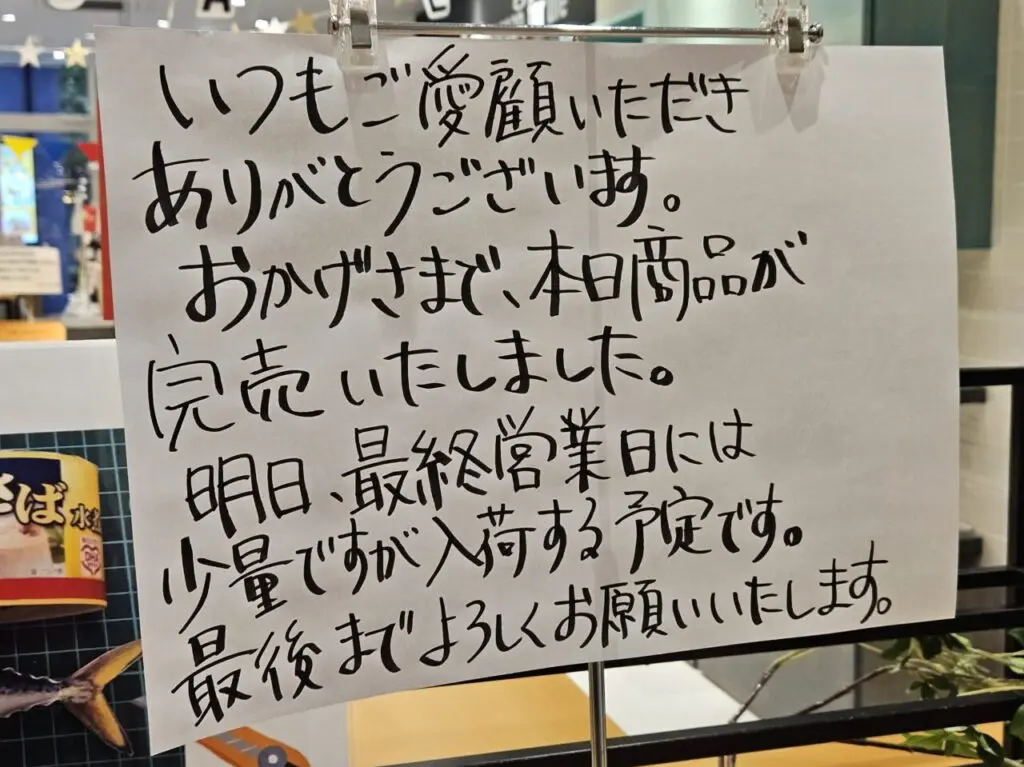 いつもご愛顧いただき
ありがとうございます。
おかげさまで、本日商品が
完売いたしました。
明日、最終営業日には
少量ですが入荷する予定です。
最後までよろしくお願いいたします。
さば水煮